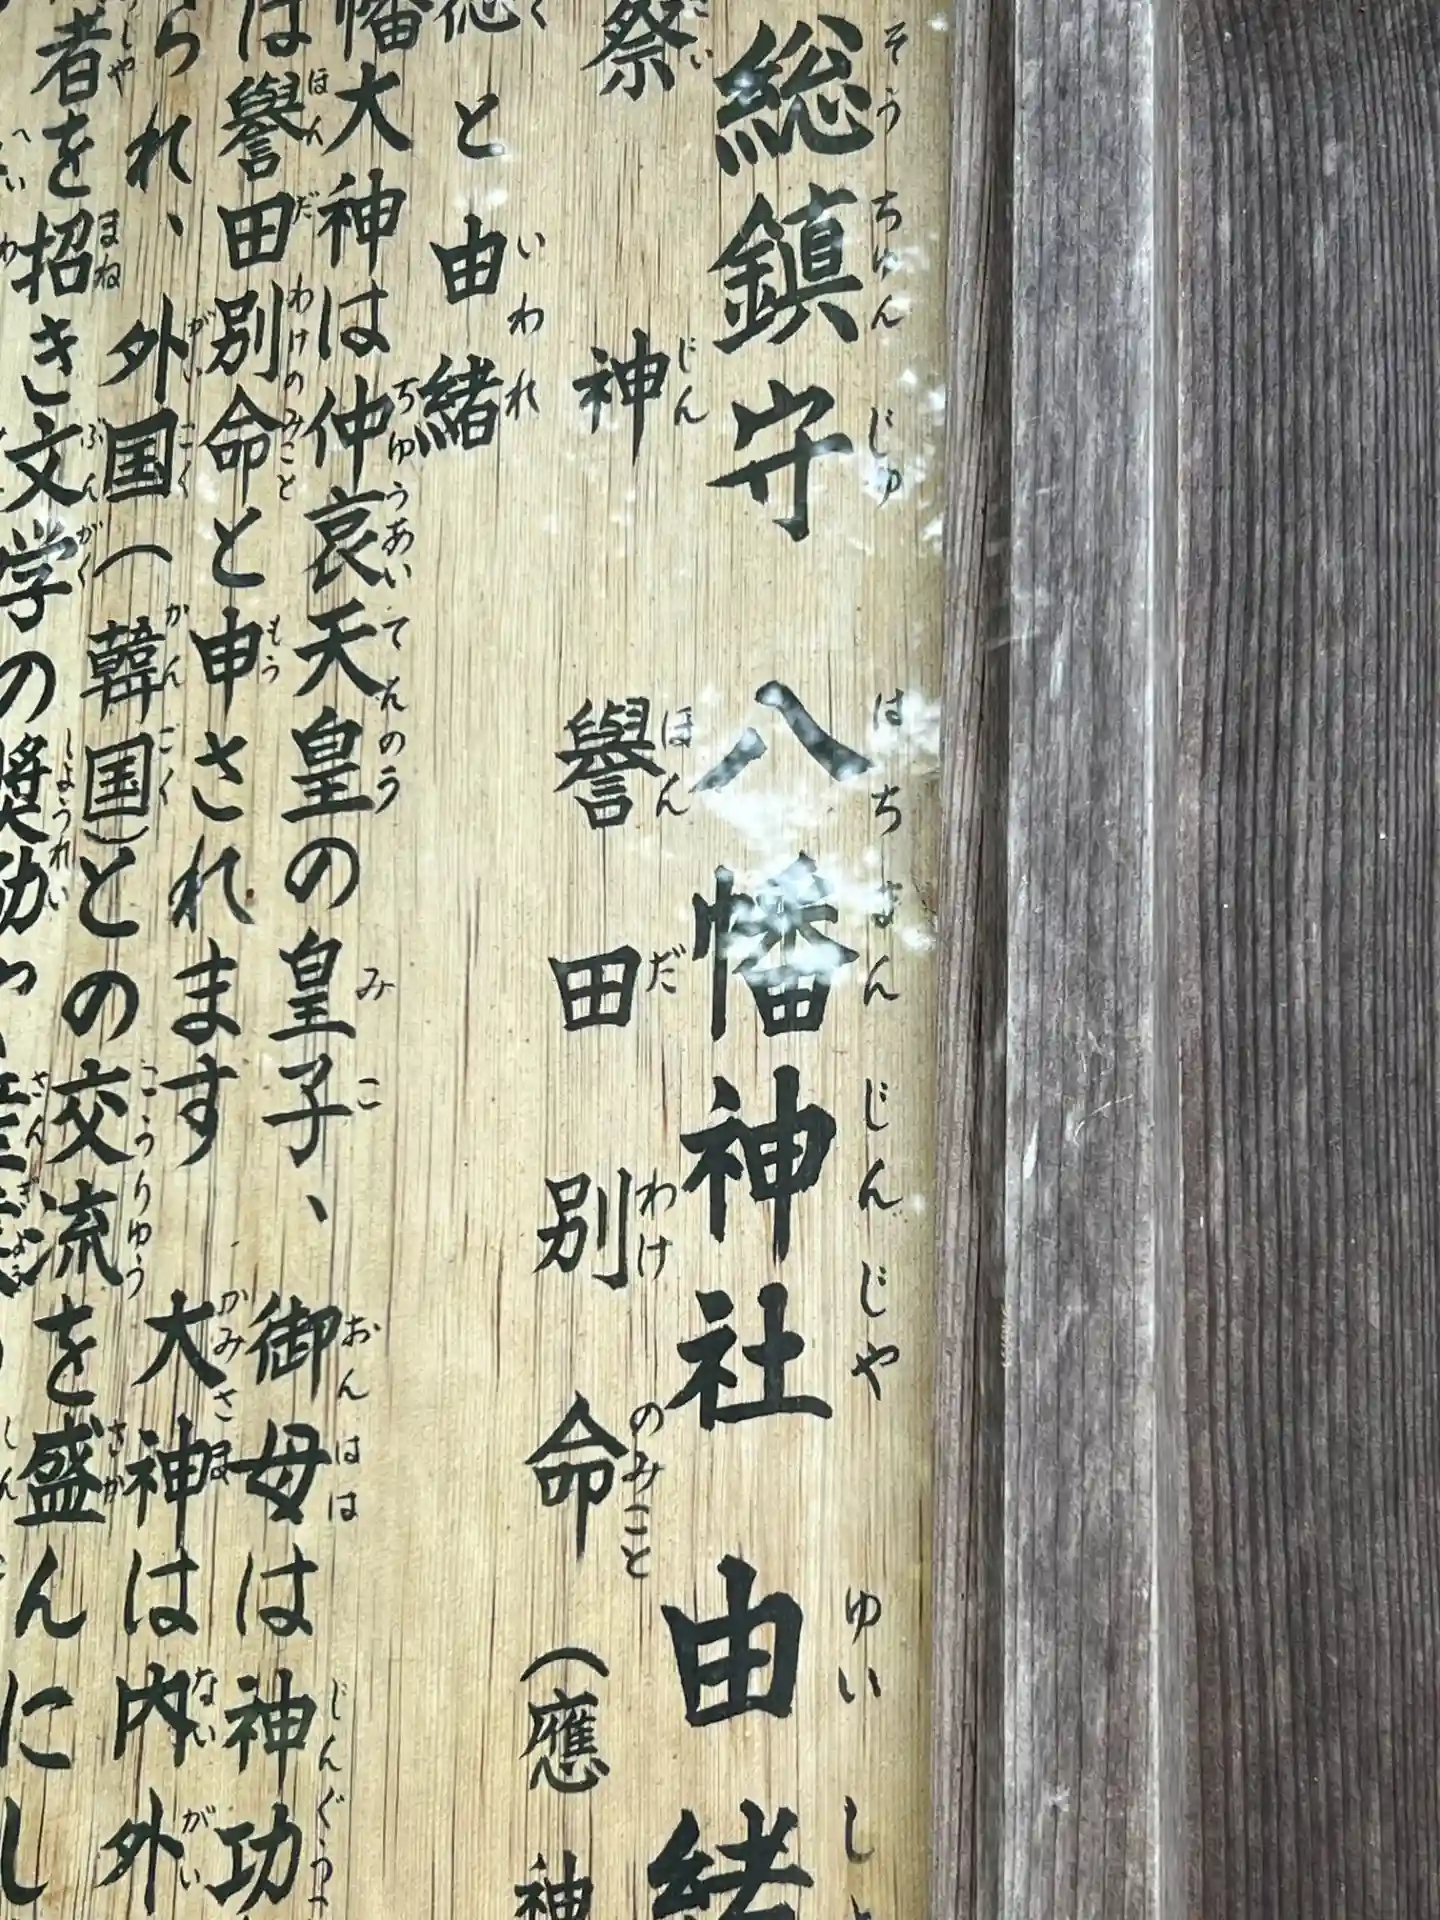 総鎮守 八幡神社 由緒
祭神 譽田別命（應神
と由緒
幡大神は仲哀天皇の皇子、御母は神功
は譽田別命と申されます 大神は内外
られ、外国（韓国）との交流を盛んにし
者を招き文学の奨励